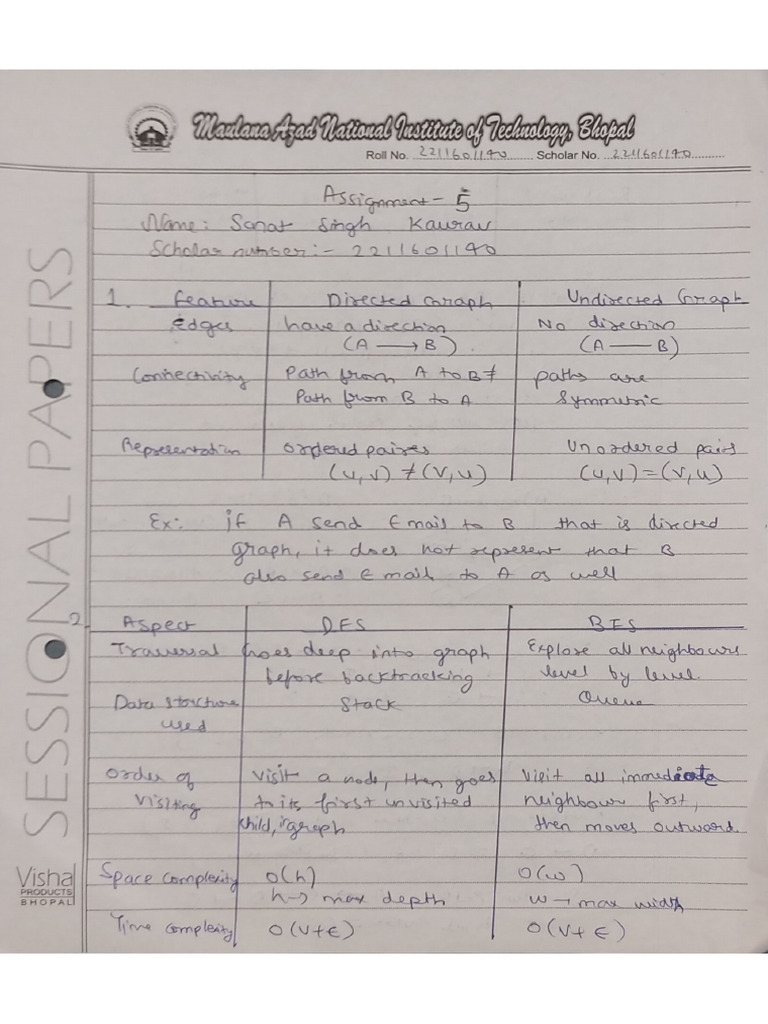 Maulana Azad National Institute of Technology, Bhopal
Roll No. 2211601140 Scholar No. 2211601140
Assignment - 5
Name: Sanat Singh Kaurav
Scholar number:- 2211601140
1. Feature Directed Graph Undirected Graph
Edges have a direction No direction
(A → B) (A — B)
Connectivity Path from A to B ≠ paths are
Path from B to A Symmetric
Representation ordered paires Unordered pairs
(u,v) ≠ (v,u) (u,v) = (v,u)
Ex: if A send Email to B that is directed
graph, it does not represent that B
also send Email to A as well
2. Aspect DFS BFS
Traversal Goes deep into graph Explore all neighbours
before backtracking level by level
Data storcture Stack Queue
used
Order of Visit a node, then goes Visit all immediate
Visiting to its first unvisited neighbour first,
child, in graph then moves outward
Space Complexity O(h) O(w)
h→ max depth w→ max width
Time Complexity O(V+E) O(V+E)
SESSIONAL PAPERS
Vishal
PRODUCTS
BHOPAL